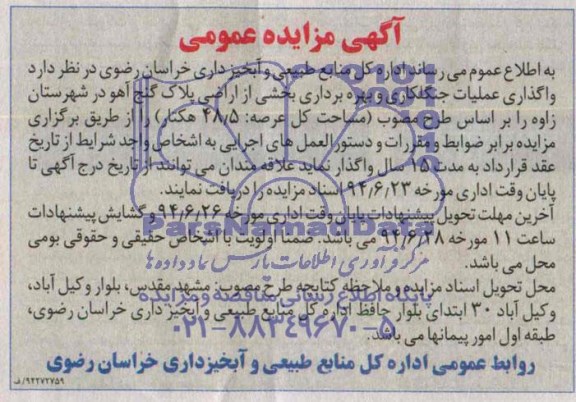 آگهی مزایده عمومی
به اطلاع عموم می رساند اداره کل منابع طبیعی و آبخیزداری خراسان رضوی در نظر دارد
واگذاری عملیات جنگلکاری و بهره برداری بخشی از اراضی پلاک گنج آهو در شهرستان
زاوه را بر اساس طرح مصوب (مساحت کل عرصه: ۴۸٫۵ هکتار) را از طریق برگزاری
مزایده برابر ضوابط و مقررات و دستورالعمل های اجرایی به اشخاص واجد شرایط از تاریخ
عقد قرارداد به مدت ۱۵ سال واگذار نماید علاقه مندان می توانند از تاریخ درج آگهی تا
پایان وقت اداری مورخه ۹۴٫۶٫۲۳ اسناد مزایده را دریافت نمایند.
آخرین مهلت تحویل پیشنهادات پایان وقت اداری مورخه ۹۴٫۶٫۲۶ و گشایش پیشنهادات
ساعت ۱۱ مورخه ۹۴٫۶٫۲۸ می باشد. ضمناً اولویت با اشخاص حقیقی و حقوقی بومی
محل می باشد.
ParsNamadData
مرکز فرآوری اطلاعات پارس نماد داده ها
محل تحویل اسناد مزایده و ملاحظه کتابچه طرح مصوب: مشهد مقدس، بلوار وکیل آباد،
پایگاه اطلاع رسانی مناقصه و مزایده
وکیل آباد ۳۰ ابتدای بلوار حافظ اداره کل منابع طبیعی و آبخیزداری خراسان رضوی،
۰۲۱-۸۸۳۴۹۶۷۰-۵
طبقه اول امور پیمانها می باشد.
روابط عمومی اداره کل منابع طبیعی و آبخیزداری خراسان رضوی
۹۴۲۷۲۷۵۹/ف